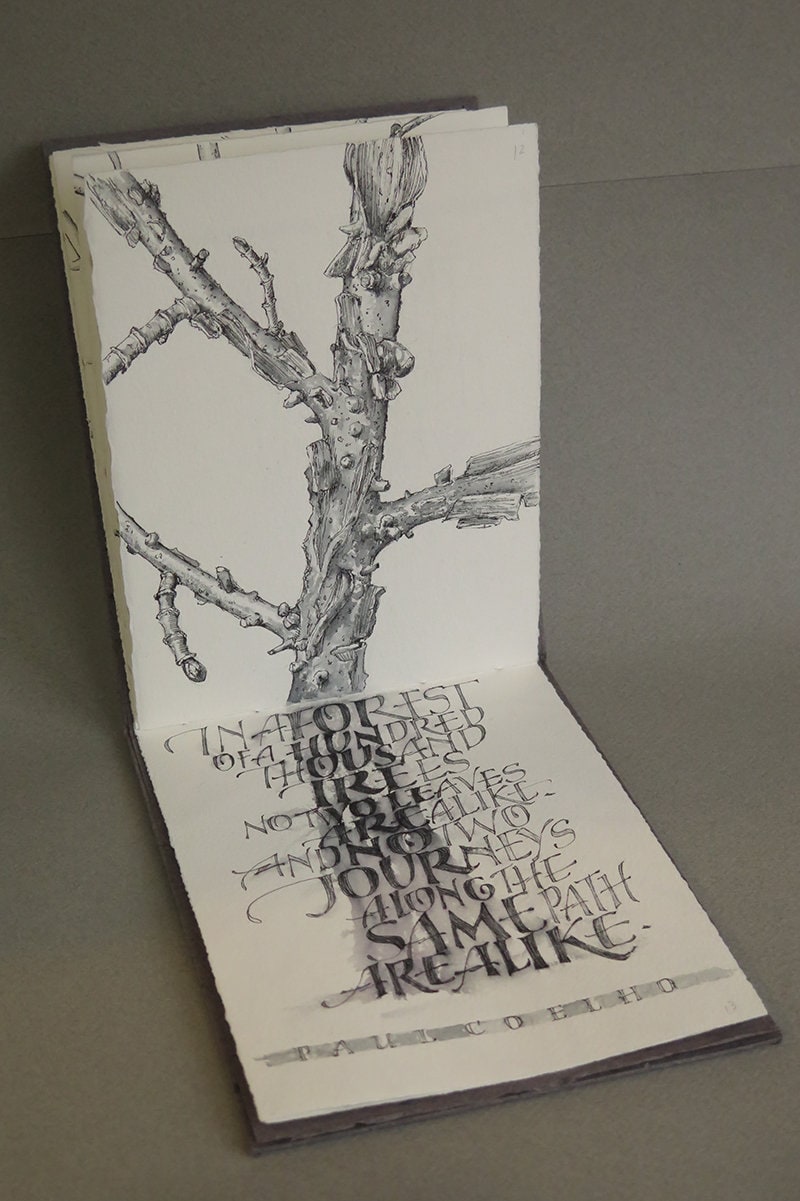 12
IN A FOREST
OF A HUNDRED
THOUSAND
TREES
NO TWO LEAVES
ARE ALIKE.
AND NO TWO
JOURNEYS
ALONG THE
SAME PATH
ARE ALIKE.
PAUL COELHO
13